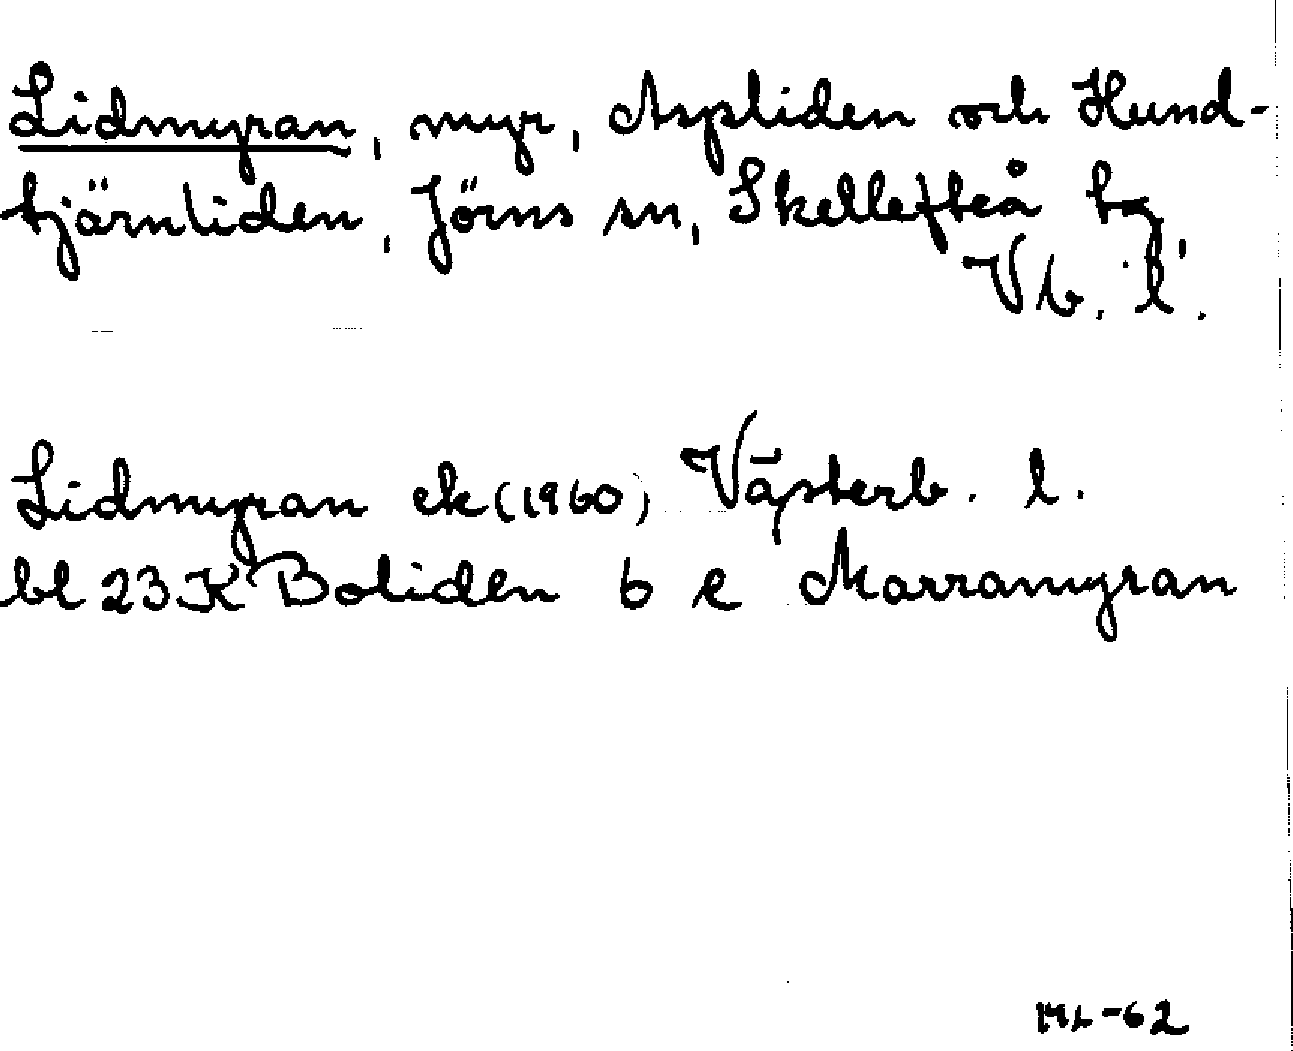 Lidmyran, myr, Aspliden och Hund-
tjärnliden, Jörns sn, Skellefteå tg,
Vb. l.
Lidmyran ek (1960) Västerb. l.
bl 23 K Boliden 6 e Marramyran
ML -62